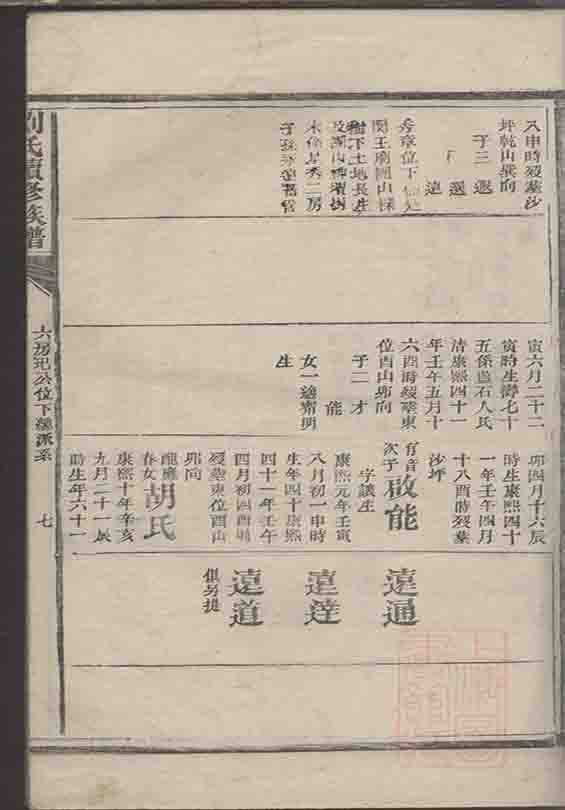 劉氏續修族譜
六房玘公位下彝派系
七
入申時歿葬沙
坪乾山巽向
子三 遐
選
遠
秀章位下
子孫永遠
寅六月二十二
寅時生壽七十
五係盧石人氏
清康熙四十一
年壬午五月十
六酉時歿葬東
位酉山卯向
子二 才
能
女一適齊明
生
卯四月十六辰
時生康熙四十
一年壬午四月
十八酉時歿葬
沙坪
有音
次子
啟能
字議生
康熙元年壬寅
八月初一申時
生年四十康熙
四十一年壬午
四月初四酉時
歿葬東位酉山
卯向
醴應
春女
胡氏
康熙十年辛亥
九月二十一辰
時生年六十一
遠通
遠達
遠道
俱另提